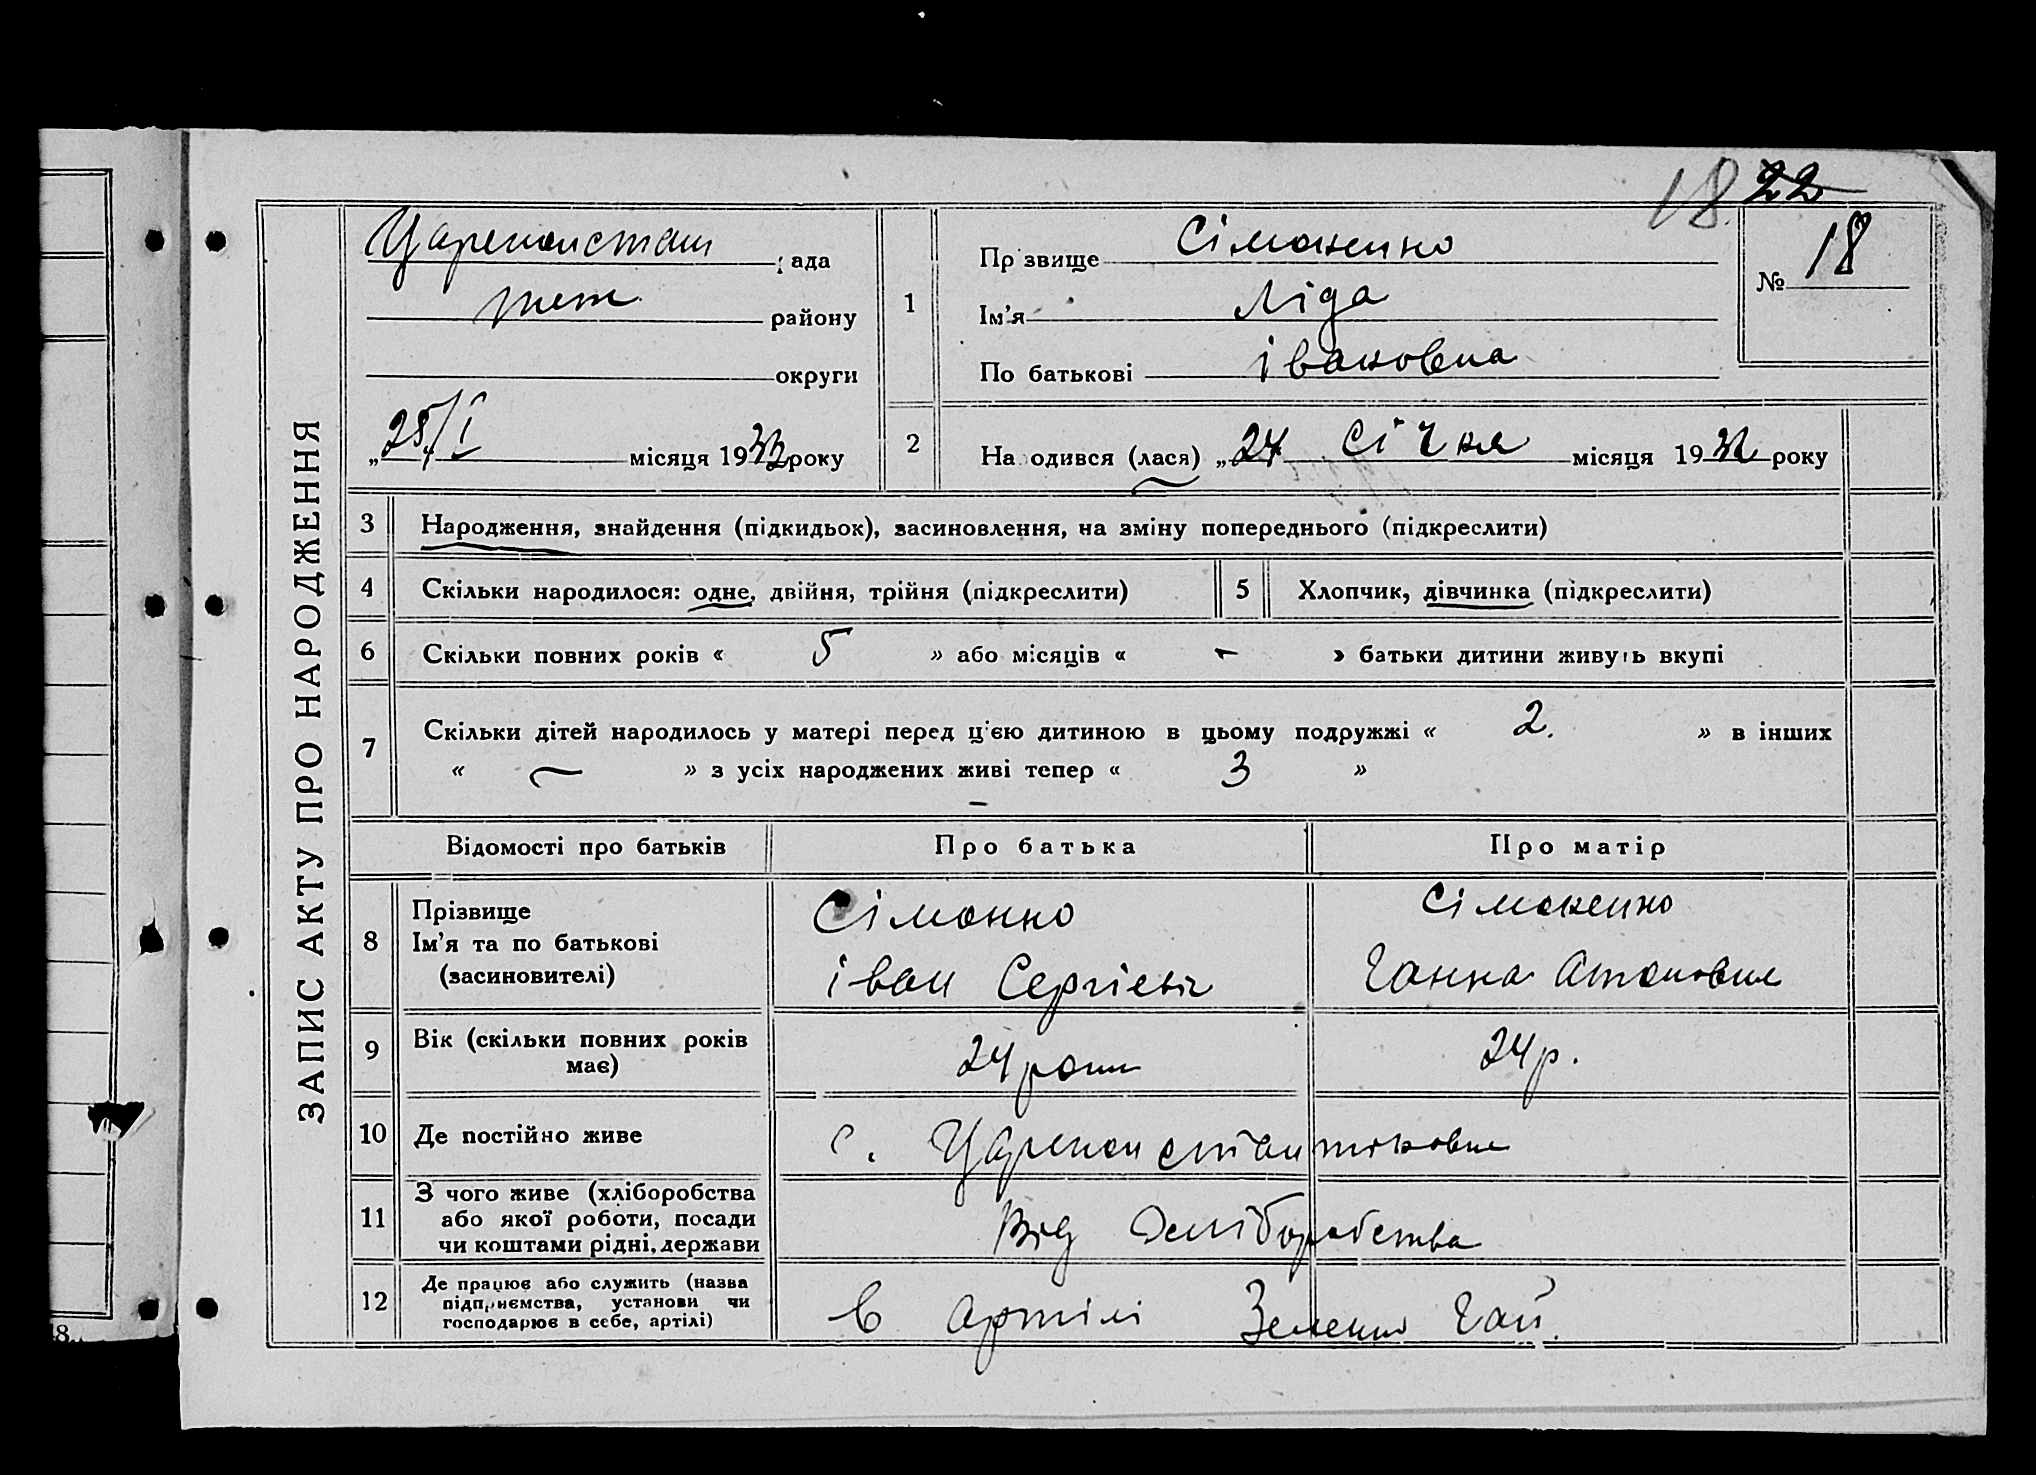 18 22
ЗАПИС АКТУ ПРО НАРОДЖЕННЯ
Цареконстан рада
району
округи
„ 25/I місяця 1932 року
1
Прізвище Сімоненко
Ім'я Ліда
По батькові івановна
№ 18
2
Народився (лася) „ 24 Січня місяця 1932 року
3 Народження, знайдення (підкидьок), засиновлення, на зміну попереднього (підкреслити)
4 Скільки народилося: одне, двійня, трійня (підкреслити)
5 Хлопчик, дівчинка (підкреслити)
6 Скільки повних років « 5 » або місяців « - » батьки дитини живуть вкупі
7 Скільки дітей народилось у матері перед цією дитиною в цьому подружжі « 2. » в інших
« — » з усіх народжених живі тепер « 3 »
Відомості про батьків Про батька Про матір
8 Прізвище
Ім'я та по батькові
(засиновителі)
Сімонко
іван Сергієвіч
Сімоненко
Ганна
9 Вік (скільки повних років
має)
24 роки
24 р.
10 Де постійно живе
с. Цареконстантіновка
11 З чого живе (хліборобства
або якої роботи, посади
чи коштами рідні, держави
Від хліборобства
12 Де працює або служить (назва
підприємства, установи чи
господарює в себе, артілі)
в артілі Зелений Гай.
8